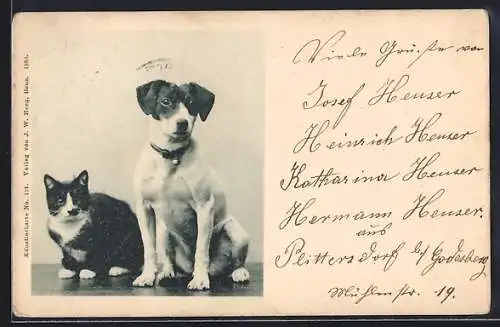 Künstlerkarte No. 111. Verlag von J. W. Hoog, Bonn. 1898.
Viele Grüsse von
Josef Heuser
Heinrich Heuser
Katharina Heuser
Hermann Heuser.
aus
Plittersdorf b/ Godesberg
Mühlenstr. 19.